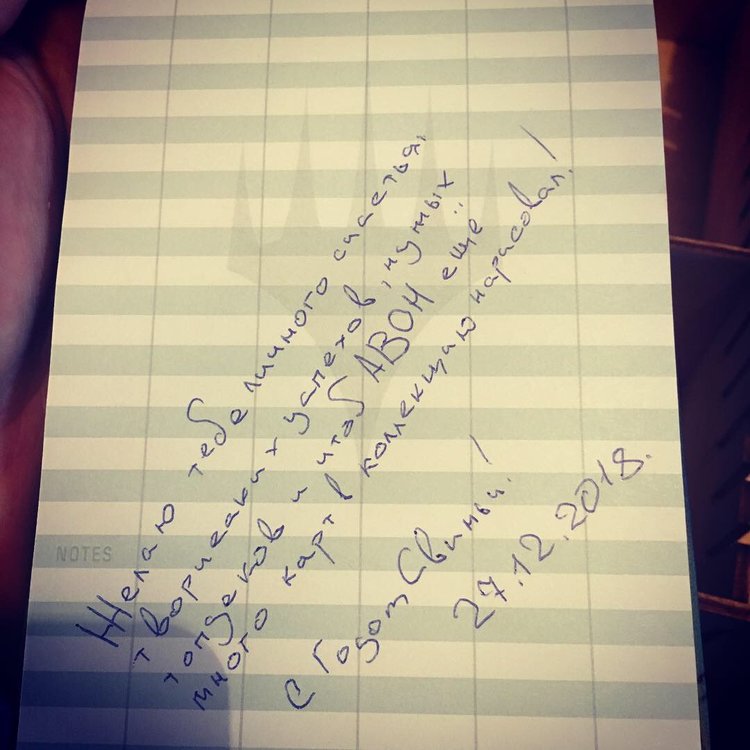 Желаю тебе личного счастья,
творческих успехов, нужных
топдеков и чтоб АВОН ещё
много карт в коллекцию нарисовал!
С Годом Свиньи!
27.12.2018.
NOTES